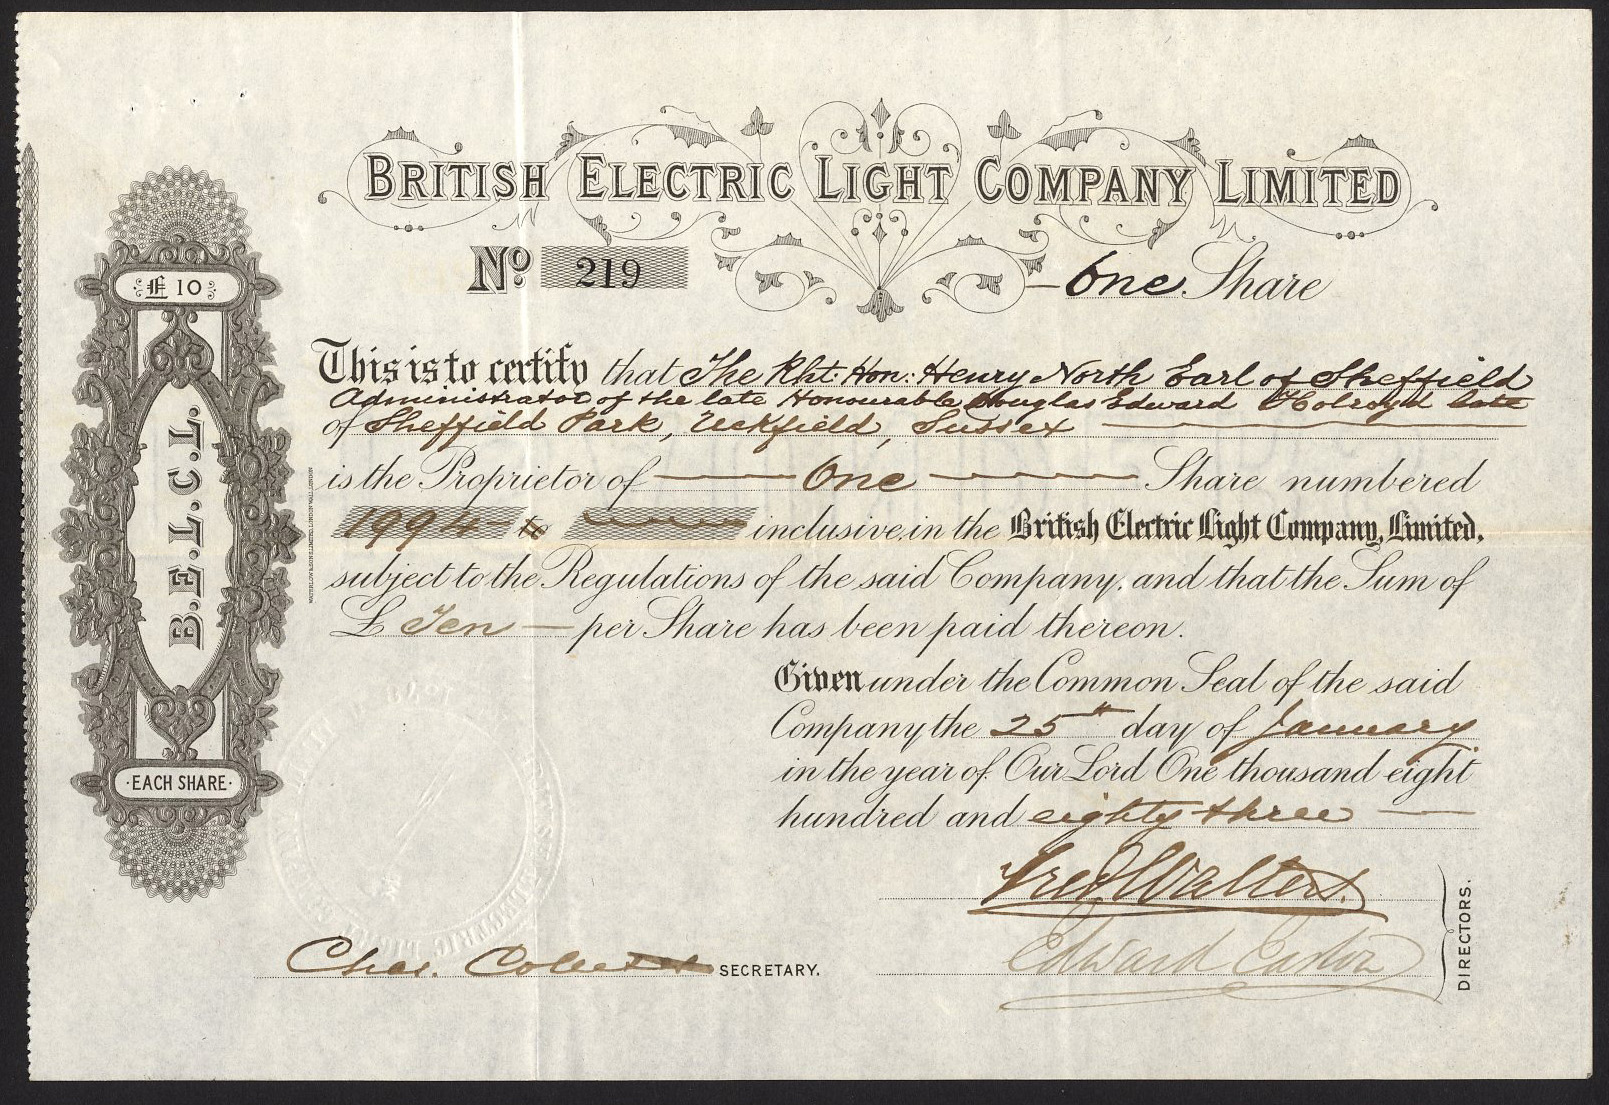 BRITISH ELECTRIC LIGHT COMPANY LIMITED
No. 219 One Share
£10
B.E.L.C.L.
·EACH SHARE·
This is to certify that The Rht. Hon: Henry North Earl of Sheffield
Administrator of the late Honourable Douglas Edward Holroyd late
of Sheffield Park, Uckfield, Sussex
is the Proprietor of One Share numbered
1994 to inclusive, in the British Electric Light Company, Limited,
subject to the Regulations of the said Company, and that the Sum of
£ Ten per Share has been paid thereon.
Given under the Common Seal of the said
Company the 25th day of January
in the year of Our Lord One thousand eight
hundred and eighty three
Fred Walters
Edward Easton
DIRECTORS.
Chas. SECRETARY.